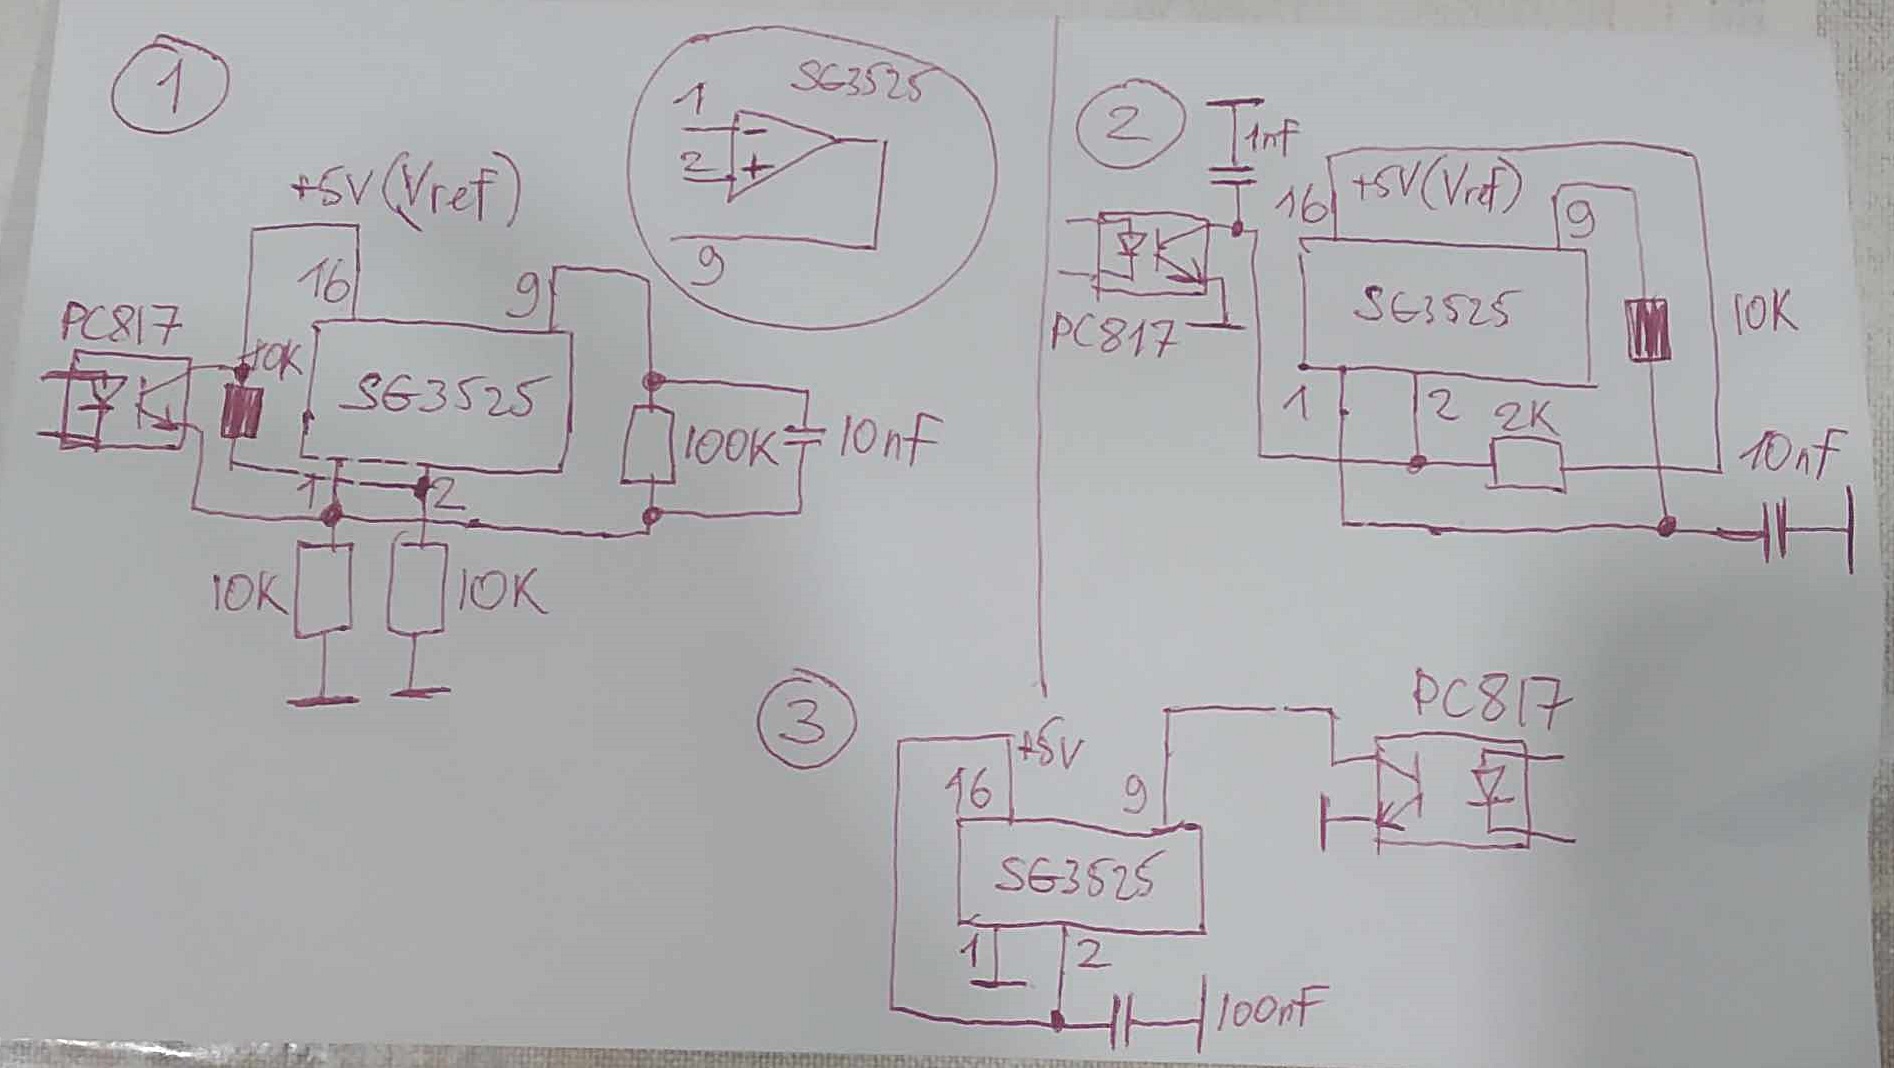 1
+5V(Vref)
16
9
PC817
10K
SG3525
100K
10nF
1
2
10K
10K
SG3525
1
-
2
+
9
2
1nF
16
+5V(Vref)
9
PC817
SG3525
10K
1
2
2K
10nF
3
+5V
16
9
PC817
SG3525
1
2
100nF